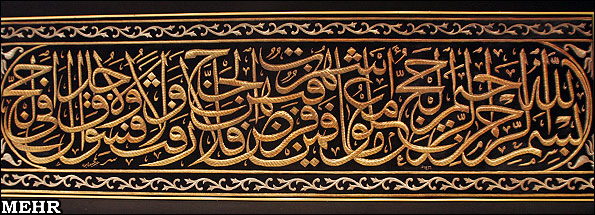 بسم الله الرحمن الرحيم الحج أشهر معلومات فمن فرض فيهن الحج فلا رفث ولا فسوق ولا جدال في الحج
MEHR